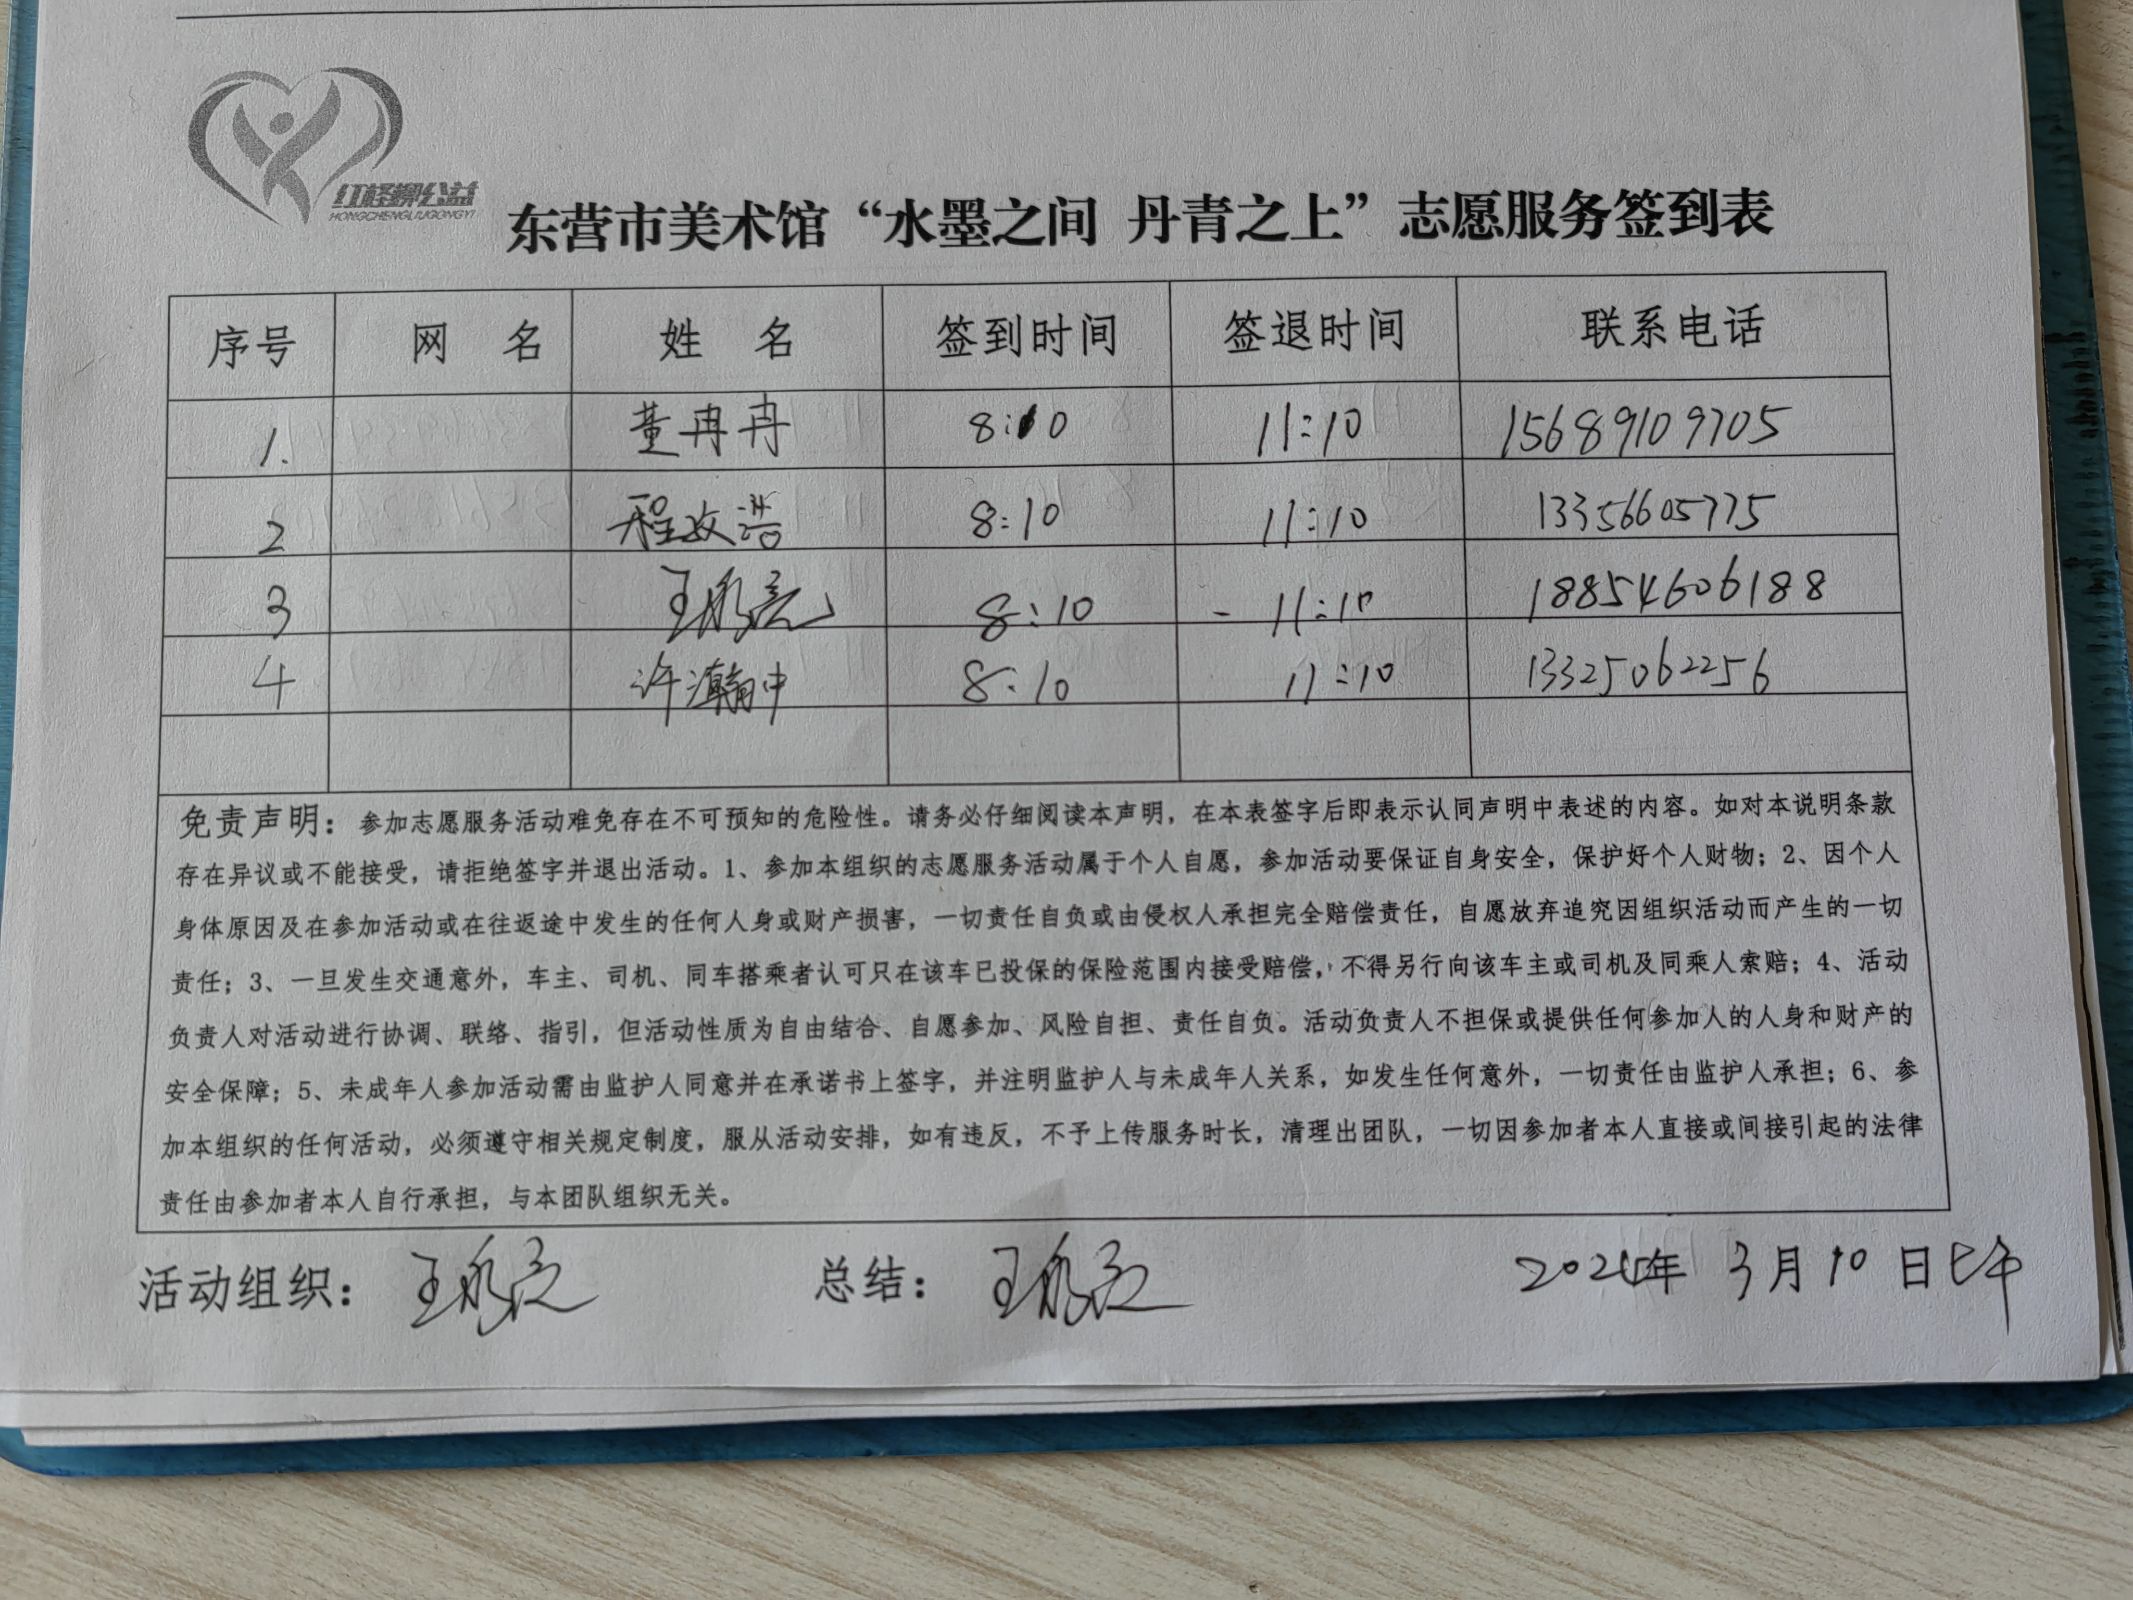 红柽柳公益
HONGCHENGLIUGONGYI
东营市美术馆“水墨之间 丹青之上”志愿服务签到表
序号 网 名 姓 名 签到时间 签退时间 联系电话
1. 董冉冉 8:10 11:10 15689109705
2 程政浩 8:10 11:10 13356605775
3 王永亮 8:10 - 11:10 18854606188
4 许瀚中 8:10 11:10 13325062256
免责声明：参加志愿服务活动难免存在不可预知的危险性。请务必仔细阅读本声明，在本表签字后即表示认同声明中表述的内容。如对本说明条款
存在异议或不能接受，请拒绝签字并退出活动。1、参加本组织的志愿服务活动属于个人自愿，参加活动要保证自身安全，保护好个人财物；2、因个人
身体原因及在参加活动或在往返途中发生的任何人身或财产损害，一切责任自负或由侵权人承担完全赔偿责任，自愿放弃追究因组织活动而产生的一切
责任；3、一旦发生交通意外，车主、司机、同车搭乘者认可只在该车已投保的保险范围内接受赔偿，不得另行向该车主或司机及同乘人索赔；4、活动
负责人对活动进行协调、联络、指引，但活动性质为自由结合、自愿参加、风险自担、责任自负。活动负责人不担保或提供任何参加人的人身和财产的
安全保障；5、未成年人参加活动需由监护人同意并在承诺书上签字，并注明监护人与未成年人关系，如发生任何意外，一切责任由监护人承担；6、参
加本组织的任何活动，必须遵守相关规定制度，服从活动安排，如有违反，不予上传服务时长，清理出团队，一切因参加者本人直接或间接引起的法律
责任由参加者本人自行承担，与本团队组织无关。
活动组织： 王永亮 总结： 王永亮 2024年 3月 10 日上午